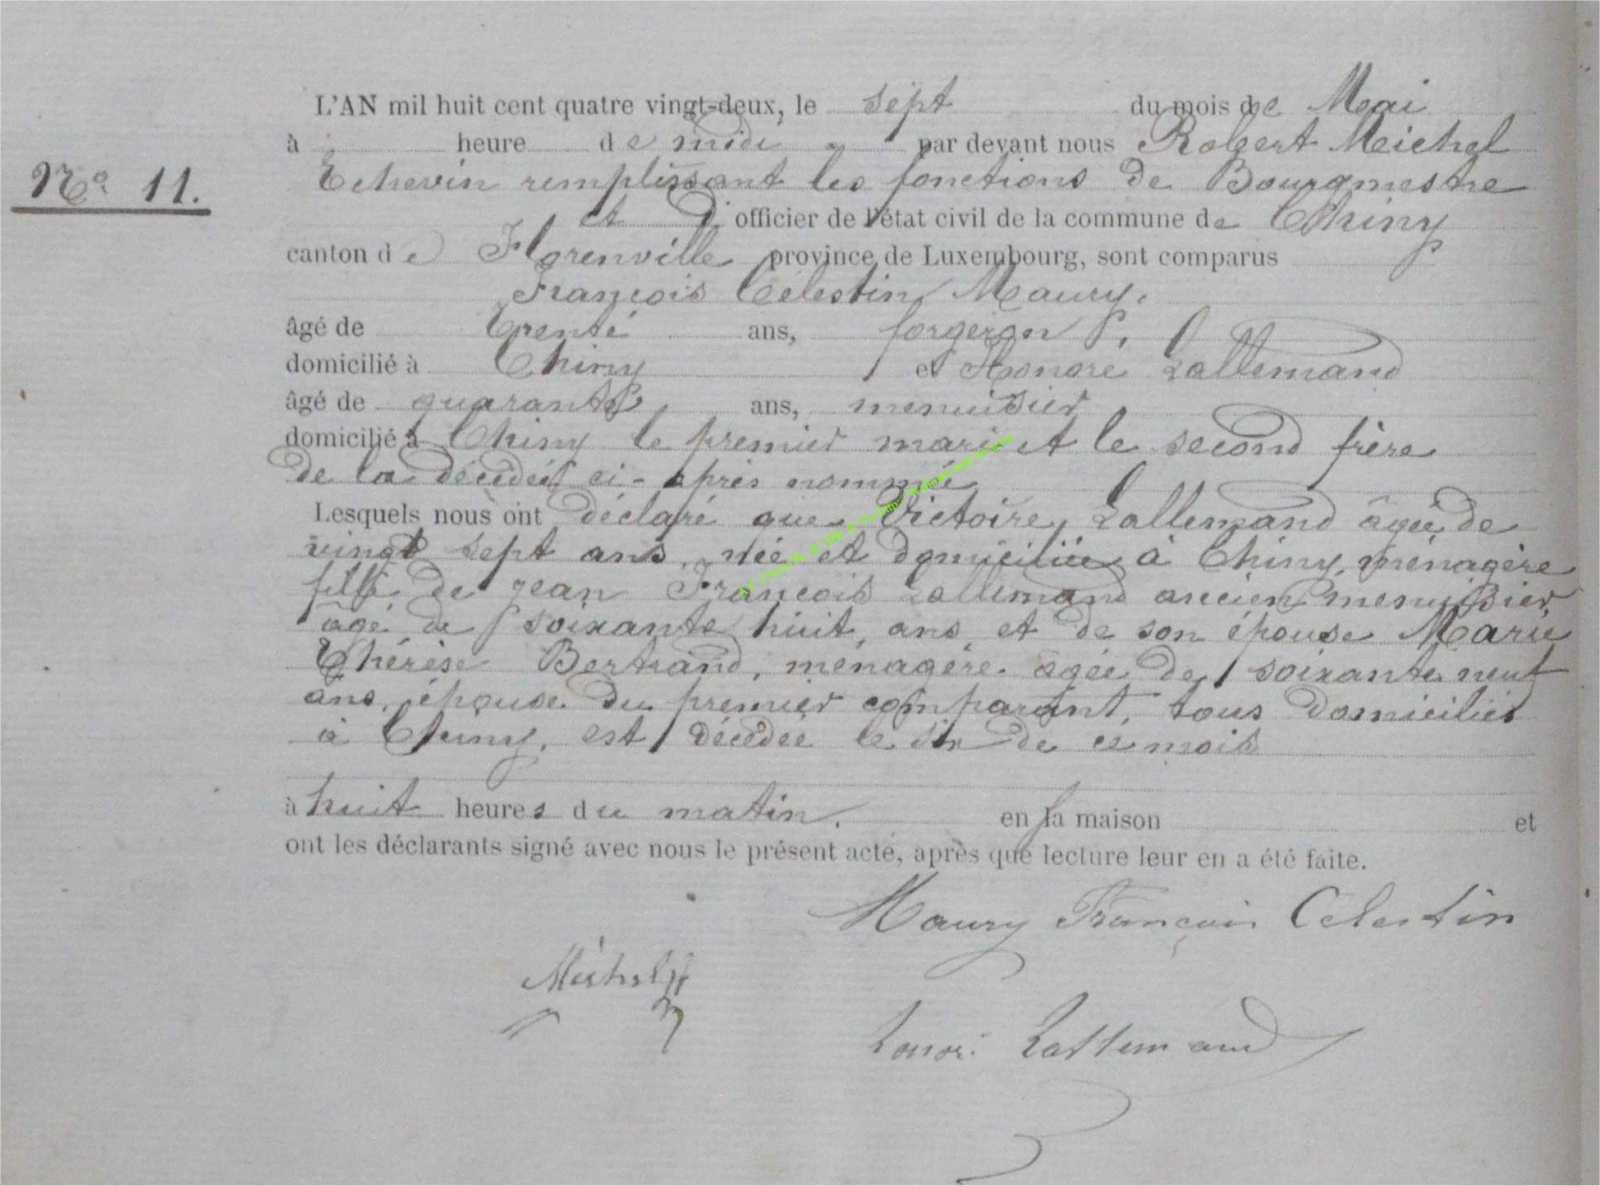 L'AN mil huit cent quatre vingt-deux, le sept du mois de Mai
à heure de midi par devant nous Robert Michel
No 11.
Echevin remplissant les fonctions de Bourgmestre
et d'officier de l'état civil de la commune de Chiny
canton de Florenville province de Luxembourg, sont comparus
François Célestin Maury,
âgé de trente ans, forgeron,
domicilié à Chiny et Honoré Lallemand
âgé de quarante ans, menuisier
domicilié à Chiny le premier mari et le second frère
de la décédée ci-après nommé
Lesquels nous ont déclaré que Victoire Lallemand âgée de
vingt sept ans, née et domiciliée à Chiny, ménagère
fille de Jean François Lallemand ancien menuisier,
âgé de soixante huit ans et de son épouse Marie
Thérèse Bertrand, ménagère âgée de soixante neuf
ans, épouse du premier comparant, tous domiciliés
à Chiny, est décédée le six de ce mois
à huit heures du matin. en sa maison et
ont les déclarants signé avec nous le présent acte, après que lecture leur en a été faite.
Maury François Célestin
Michel R
Honoré Lallemand